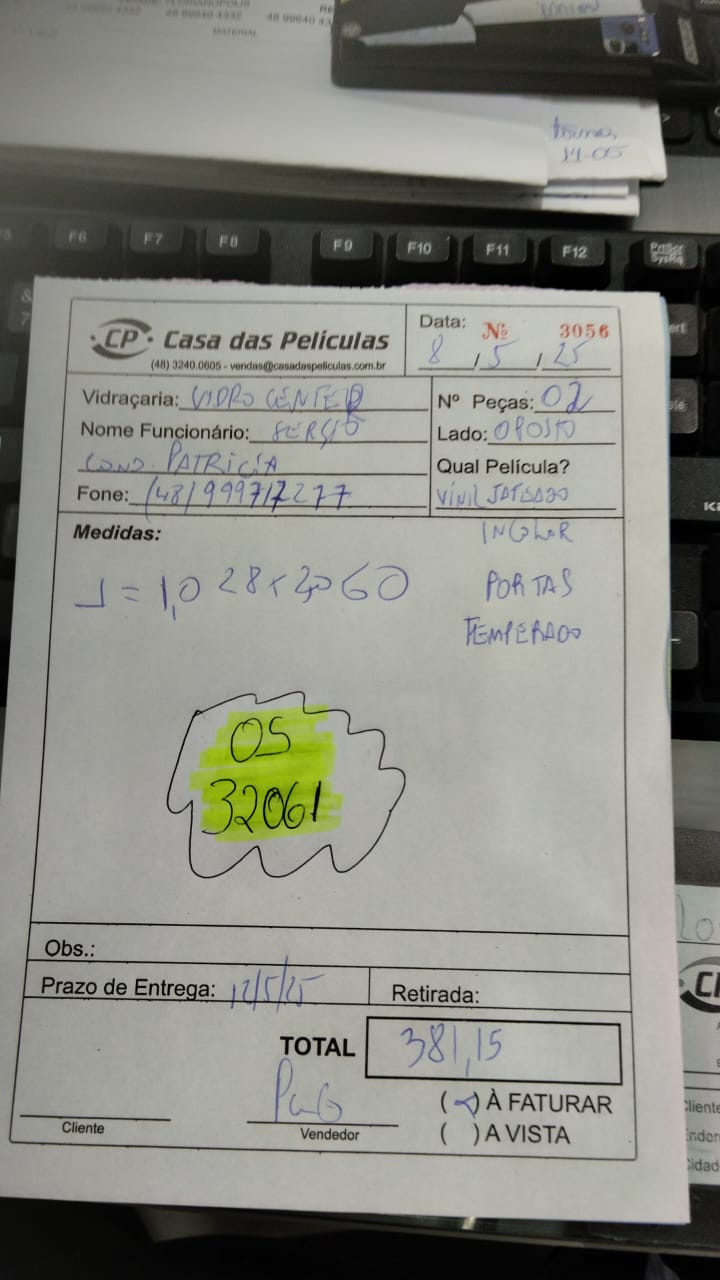 FLORIANÓPOLIS
48 99640 4332
MATERIAL
14-05
F6 F7 F8 F9 F10 F11 F12 PrtScr
SysRq
CP Casa das Películas
(48) 3240.0605 - vendas@casadaspeliculas.com.br
Data: Nº 3056
8 / 5 / 25
Vidraçaria: VIDRO CENTER
Nº Peças: 02
Nome Funcionário: SERGIO
Lado: OPOSTO
COND. PATRICIA
Qual Película?
Fone: (48) 999717277
VINIL JATEADO
Medidas:
INCOLOR
1 = 1,028 x 2,060
PORTAS
TEMPERADO
OS
32061
Obs.:
Prazo de Entrega: 12/5/25
Retirada:
TOTAL 381,15
( ) À FATURAR
Cliente
Vendedor
( ) A VISTA